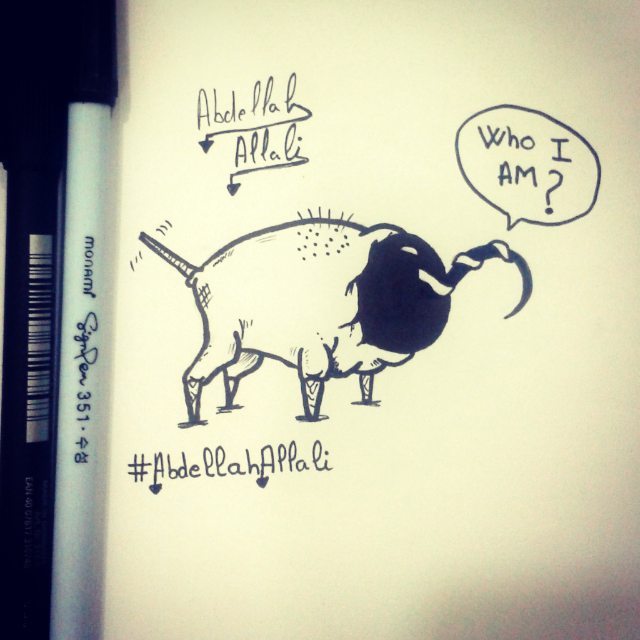 Abdellah
Allali
Who I
AM?
#AbdellahAllali
monami Sign Pen 351 · 수성